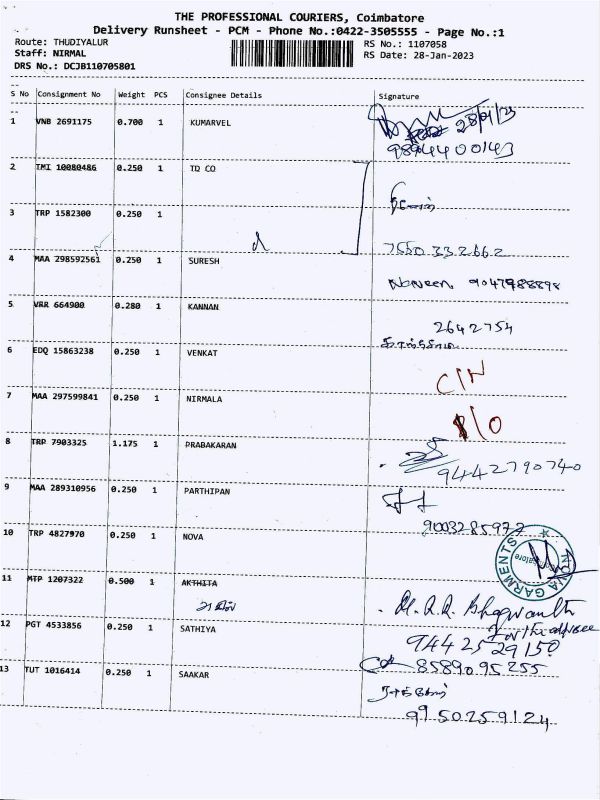 THE PROFESSIONAL COURIERS, Coimbatore
Delivery Runsheet - PCM - Phone No.:0422-3505555 - Page No.:1
Route: THUDIYALUR
Staff: NIRMAL
DRS No.: DCJB110705801
RS No.: 1107058
RS Date: 28-Jan-2023
S No Consignment No Weight PCS Consignee Details Signature
1 VNB 2691175 0.700 1 KUMARVEL 28/1/23
9894400143
2 IMI 10080486 0.250 1 TD CO
3 TRP 1582300 0.250 1
7550332662
4 MAA 298592561 0.250 1 SURESH
Naveen 9047988898
5 VRR 664900 0.280 1 KANNAN
2642754
6 EDQ 15863238 0.250 1 VENKAT C/N
7 MAA 297599841 0.250 1 NIRMALA
8 TRP 7903325 1.175 1 PRABAKARAN
9442790740
9 MAA 289310956 0.250 1 PARTHIPAN
9003285977
10 TRP 4827970 0.250 1 NOVA
GARMENTS
11 MTP 1207322 0.500 1 AKTHITA
12 PGT 4533856 0.250 1 SATHIYA
9442529150
8589095255
13 TUT 1016414 0.250 1 SAAKAR
9950259124